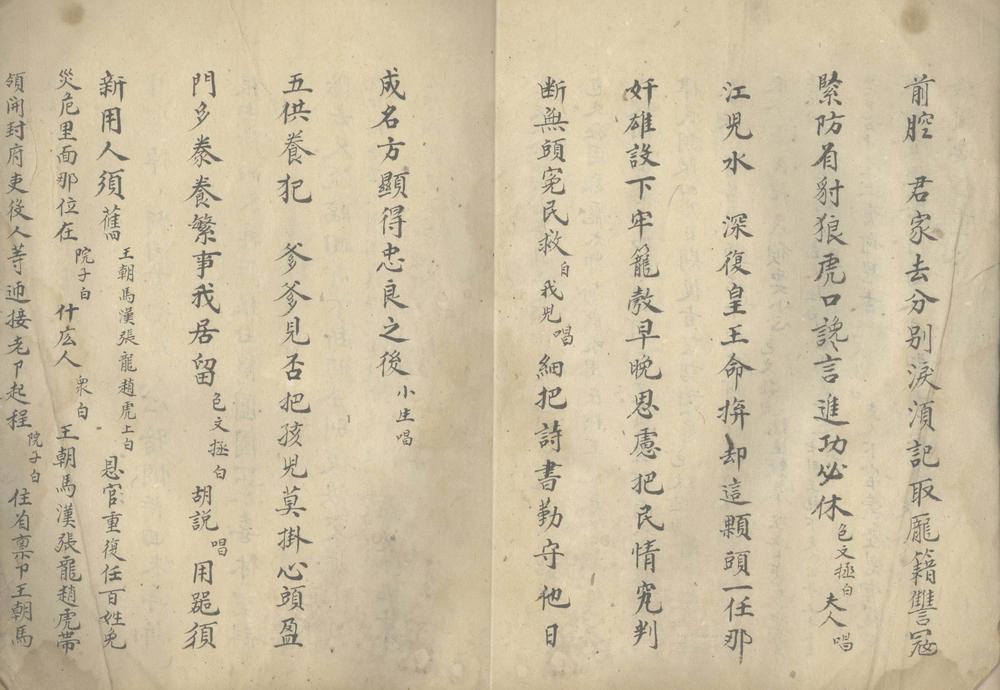 前腔　君家去分別淚湏記取龐籍讐冦
緊防有豺狼虎口讒言進功必休包文拯白夫人唱
江児水　深復皇王命拚却這顆頭一任那
奸雄設下牢籠敎早晚思慮把民情究判
断無頭寃民救白我児唱細把詩書勤守他日
成名方顯得忠良之後小生唱
五供養犯　爹爹見否把孩児莫掛心頭盈
門多泰養繁事我居留包文拯白胡說唱用噐須
新用人須舊王朝馬漢張龍趙虎上白恳官重復任百姓免
災危里面那位在院子白什庅人衆白王朝馬漢張龍趙虎帯
領開封府吏役人等迎接老卩起程院子白住有禀卩王朝馬